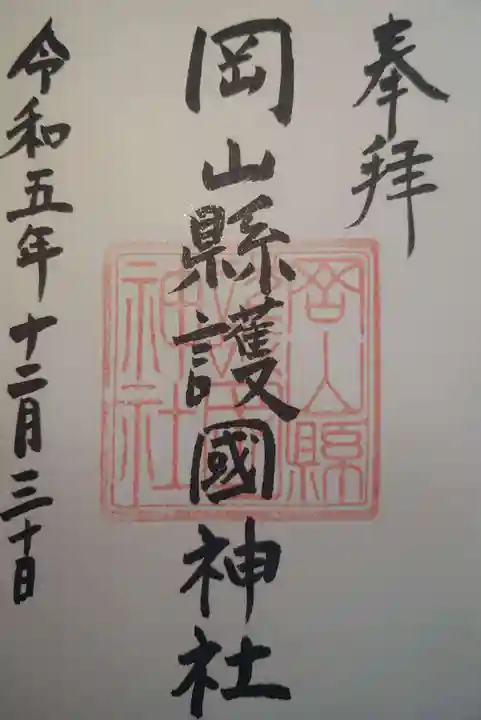 奉拝
岡山縣護國神社
岡山縣護國神社
令和五年十二月三十日